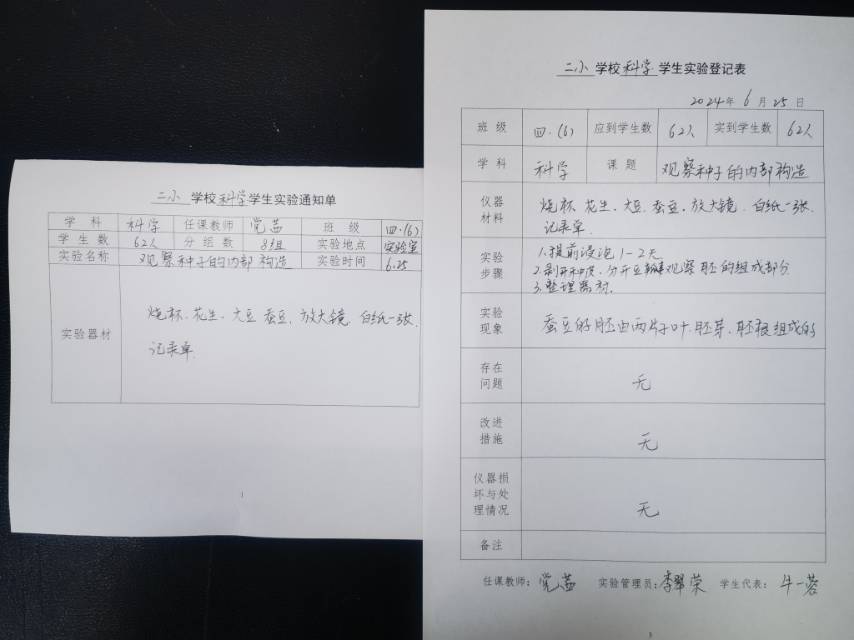 二小 学校 科学 学生实验通知单
学 科 科学 任课教师 党茜 班 级 四.(6)
学 生 数 62人 分 组 数 8组 实验地点 实验室
实验名称 观察种子的内部构造 实验时间 6.25
实验器材
烧杯、花生、大豆 蚕豆、放大镜 白纸一张、
记录单
1
二小 学校 科学 学生实验登记表
2024年 6 月 25 日
班 级 四.(6) 应到学生数 62人 实到学生数 62人
学 科 科学 课 题 观察种子的内部构造
仪器
材料
烧杯 花生、大豆、蚕豆、放大镜、白纸一张、
记录单、
实验
步骤
1.提前浸泡1-2天
2.剥开种皮、分开豆瓣观察胚的组成部分
3.整理器材
实验
现象
蚕豆的胚由两片子叶、胚芽、胚根组成的
存在
问题
无
改进
措施
无
仪器损
坏与处
理情况
无
备注
任课教师: 党茜 实验管理员: 李翠荣 学生代表: 牛一蓉